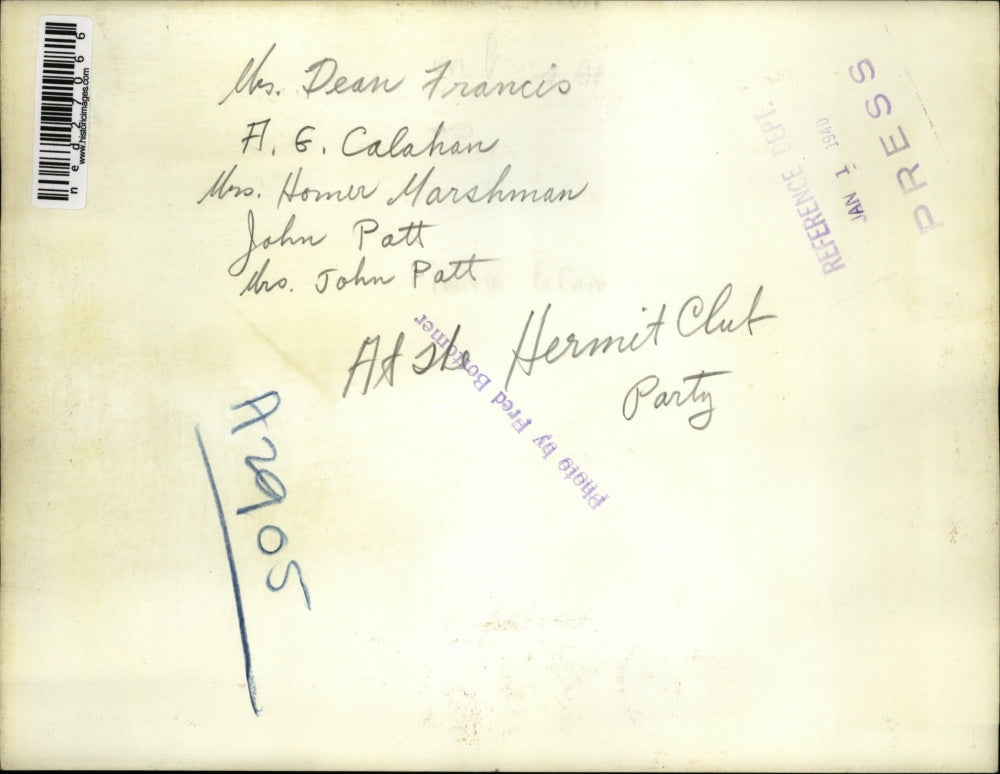 Mrs. Dean Francis
A. G. Calahan
Mrs. Homer Marshman
John Patt
Mrs. John Patt
At the Hermit Club
Party
Photo by Fred Bottomer
A2905
PRESS
JAN 1 1940
REFERENCE DEPT.
www.historicimages.com
ned27066